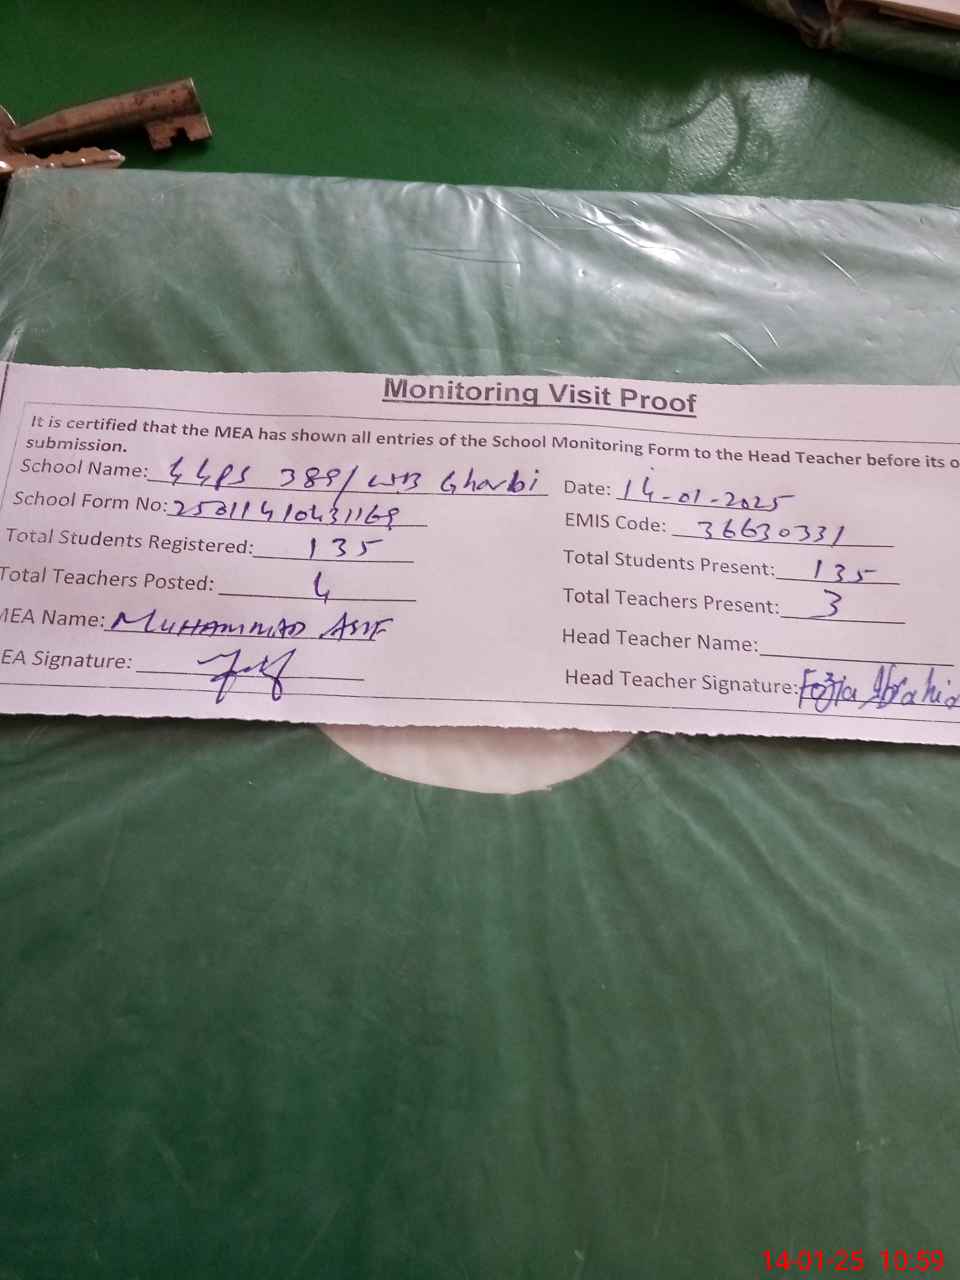 Monitoring Visit Proof
It is certified that the MEA has shown all entries of the School Monitoring Form to the Head Teacher before its o
submission.
School Name: GGPS 389/WB Gharbi
Date: 14-01-2025
School Form No:
EMIS Code: 36630331
Total Students Registered: 135
Total Students Present: 135
Total Teachers Posted: 4
Total Teachers Present: 3
MEA Name: MUHAMMAD ASIF
Head Teacher Name:
EA Signature:
Head Teacher Signature: Fozia
14-01-25 10:59